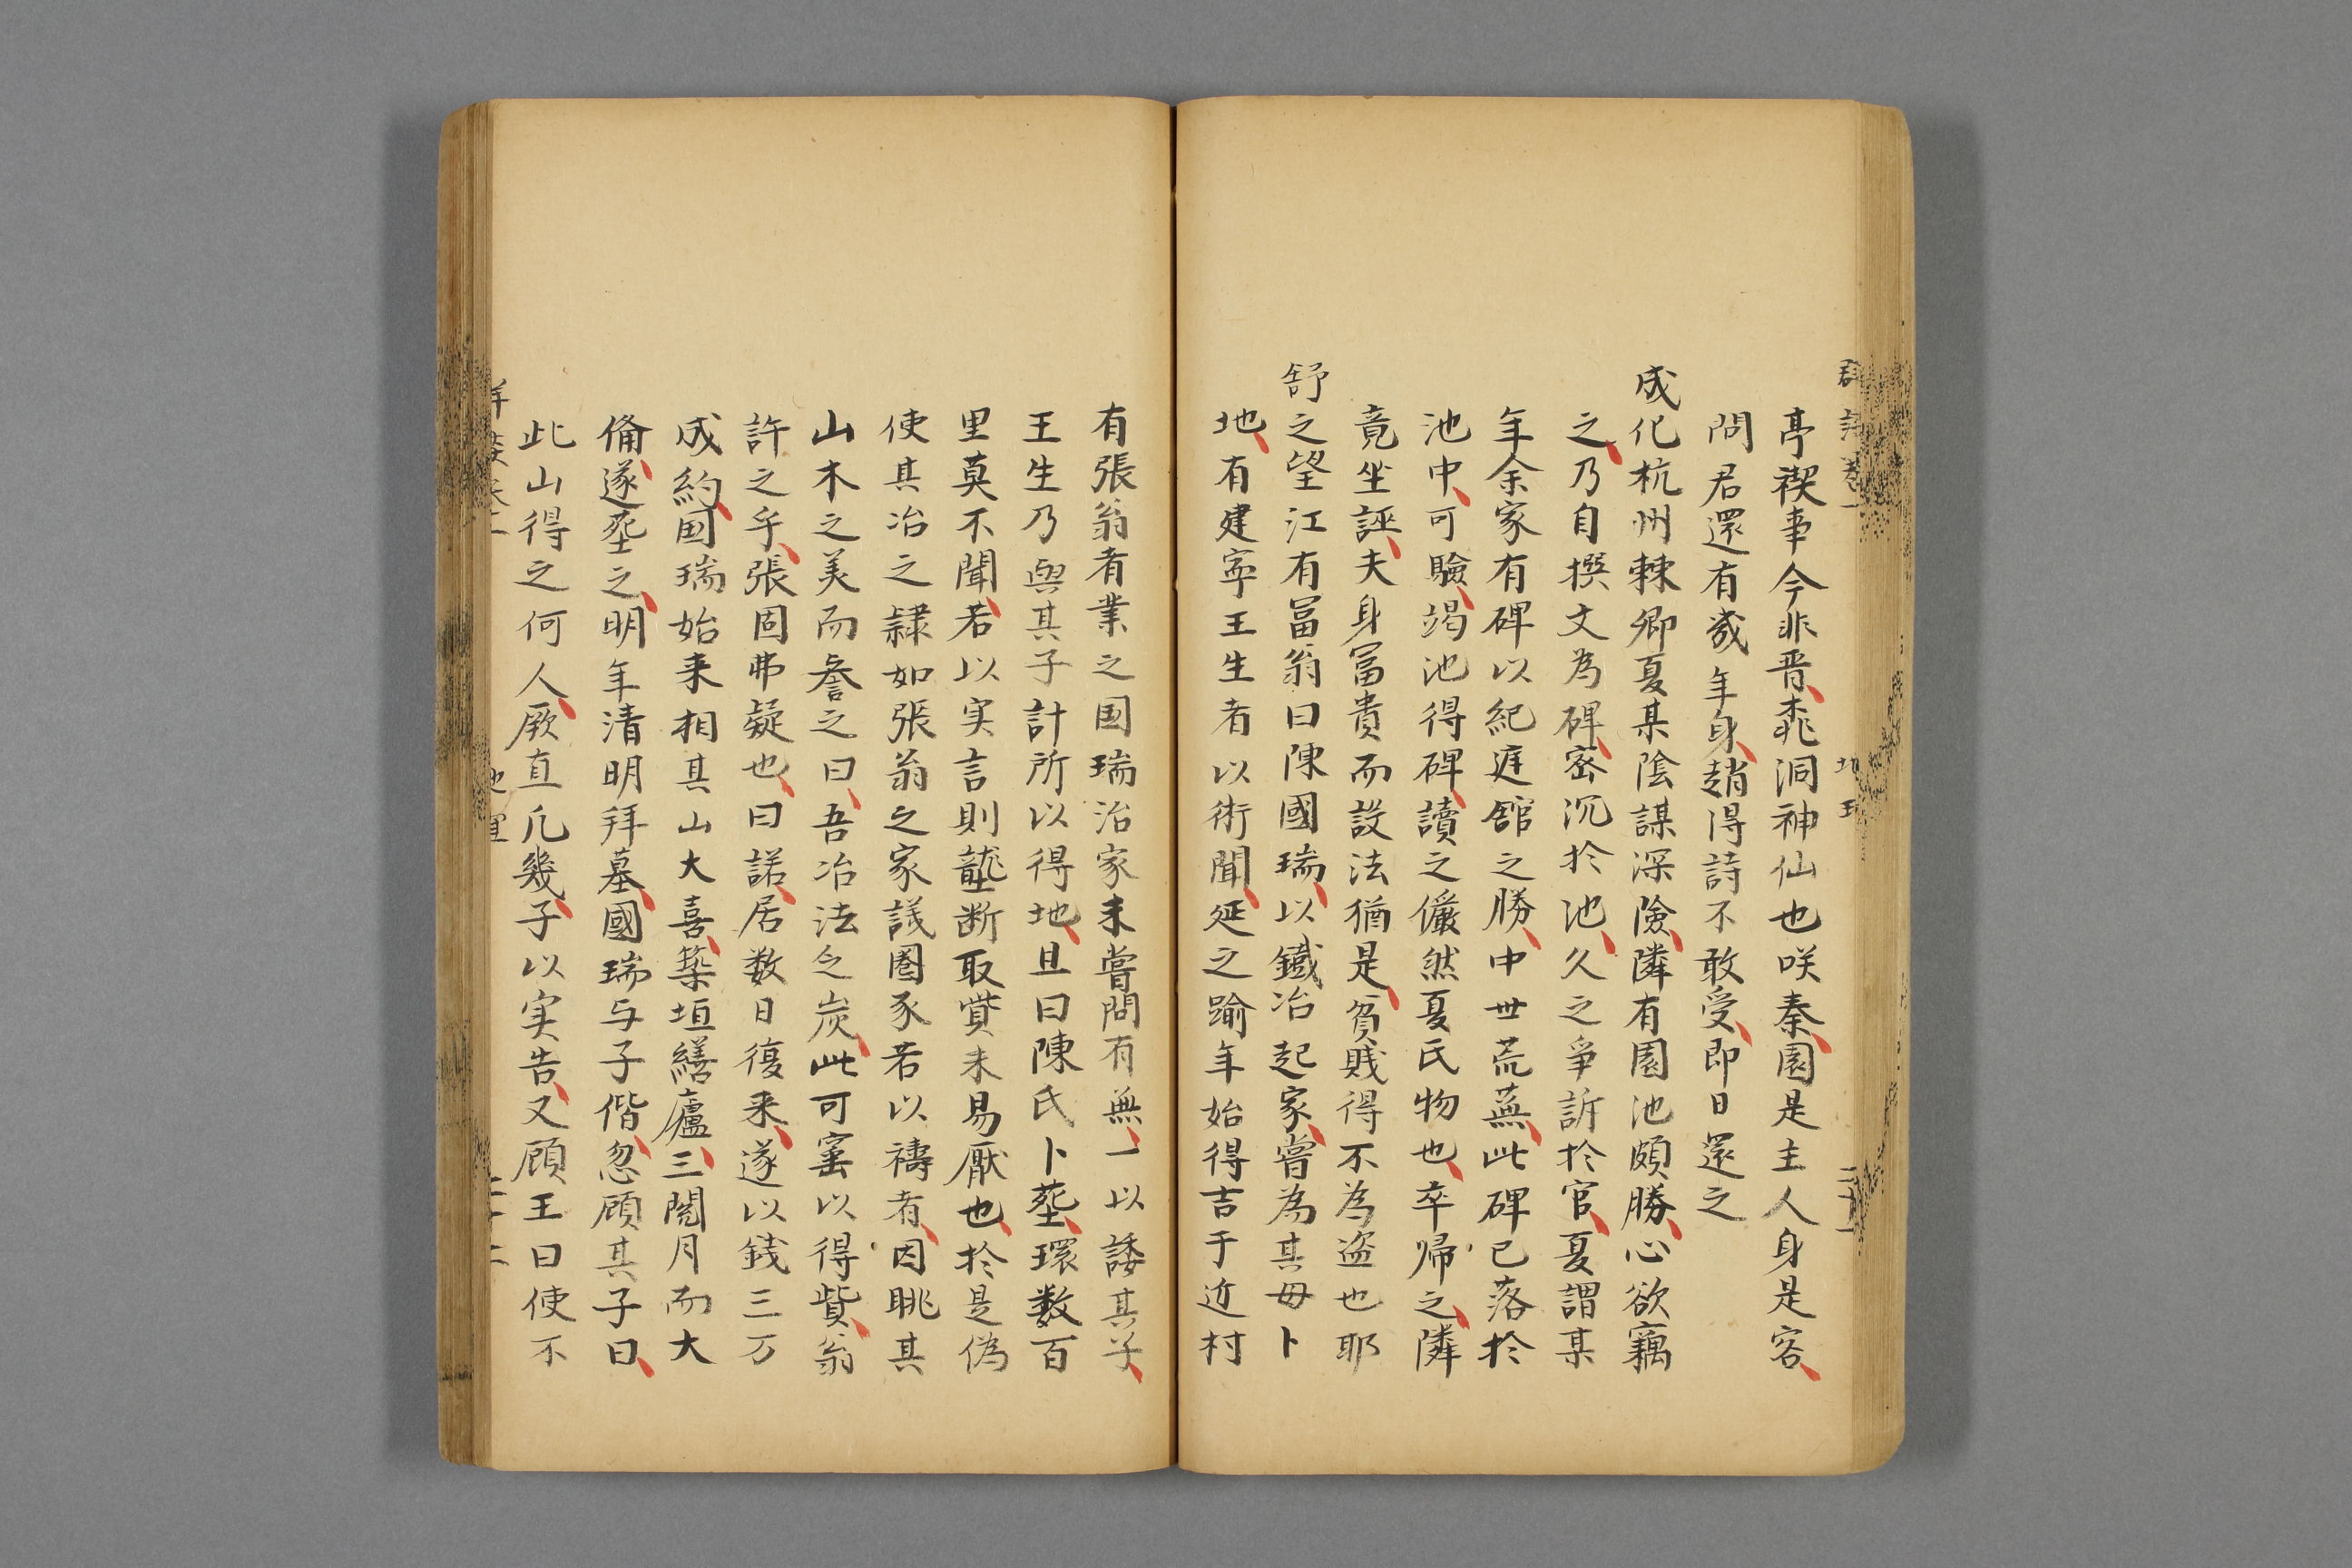 亭禊事今非晋桃洞神仙也咲秦園是主人身是客
問君還有幾年身趙得詩不敢受即日還之
成化杭州棘卿夏某陰謀深險隣有園池頗勝心欲竊
之乃自撰文為碑密沉於池久之爭訴於官夏謂某
年余家有碑以紀遊舘之勝中世荒蕪此碑已落於
池中可驗竭池得碑讀之儼然夏氏物也卒帰之隣
竟坐誣夫身冨貴而設法猶是貧賎得不為盗也耶
舒之望江有冨翁曰陳國瑞以鐵冶起家嘗為其毋卜
地有建寕王生者以術聞延之踰年始得吉于近村
有張翁者業之国瑞治家未嘗問有無一以諉其子
王生乃與其子計所以得地且曰陳氏卜塟環数百
里莫不聞若以实言則壟断取貲未易厭也於是偽
使其冶之隷如張翁之家議圏豕若以禱者因眺其
山木之美而譽之曰吾冶法乏炭此可窰以得貲翁
許之乎張固弗疑也曰諾居数日復来遂以銭三万
成約国瑞始来相其山大喜築垣繕廬三閲月而大
俻遂塟之明年清明拜墓國瑞与子偕忽顧其子曰
此山得之何人厥直凡幾子以实告又顧王曰使不